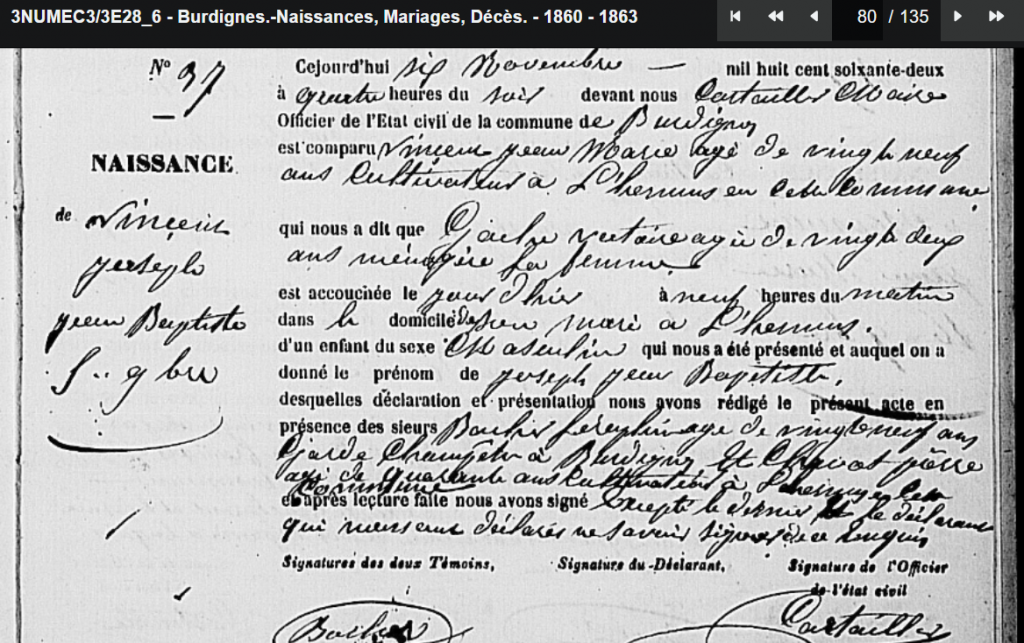 3NUMEC3/3E28_6 - Burdignes.-Naissances, Mariages, Décès. - 1860 - 1863
80 / 135
N° 37
NAISSANCE
de Vincent
joseph
jean Baptiste
Cejourd'hui six Novembre — mil huit cent soixante-deux
à quatre heures du soir devant nous Cartailler Maire
Officier de l'Etat civil de la commune de Burdignes
est comparu Vincent jean Marie agé de vingt neuf
ans Cultivateur à L'hermus en cette Commune
qui nous a dit que victoire agée de vingt deux
ans ménagère sa femme
est accouchée le jour d'hier à neuf heures du matin
dans le domicile de son mari à L'hermus.
d'un enfant du sexe Masculin qui nous a été présenté et auquel on a
donné le prénom de joseph jean Baptiste.
desquelles déclaration et présentation nous avons rédigé le présent acte en
présence des sieurs agé de vingt neuf ans
Garde Champêtre à Burdignes Et
agé de quarante ans Cultivateur à
Commune
et après lecture faite nous avons signé Excepté le dernier et le déclarant
qui nous ont déclarés ne savoir signer de ce enquis
Signatures des deux Témoins, Signature du Déclarant, Signature de l'Officier
de l'état civil
Cartailler